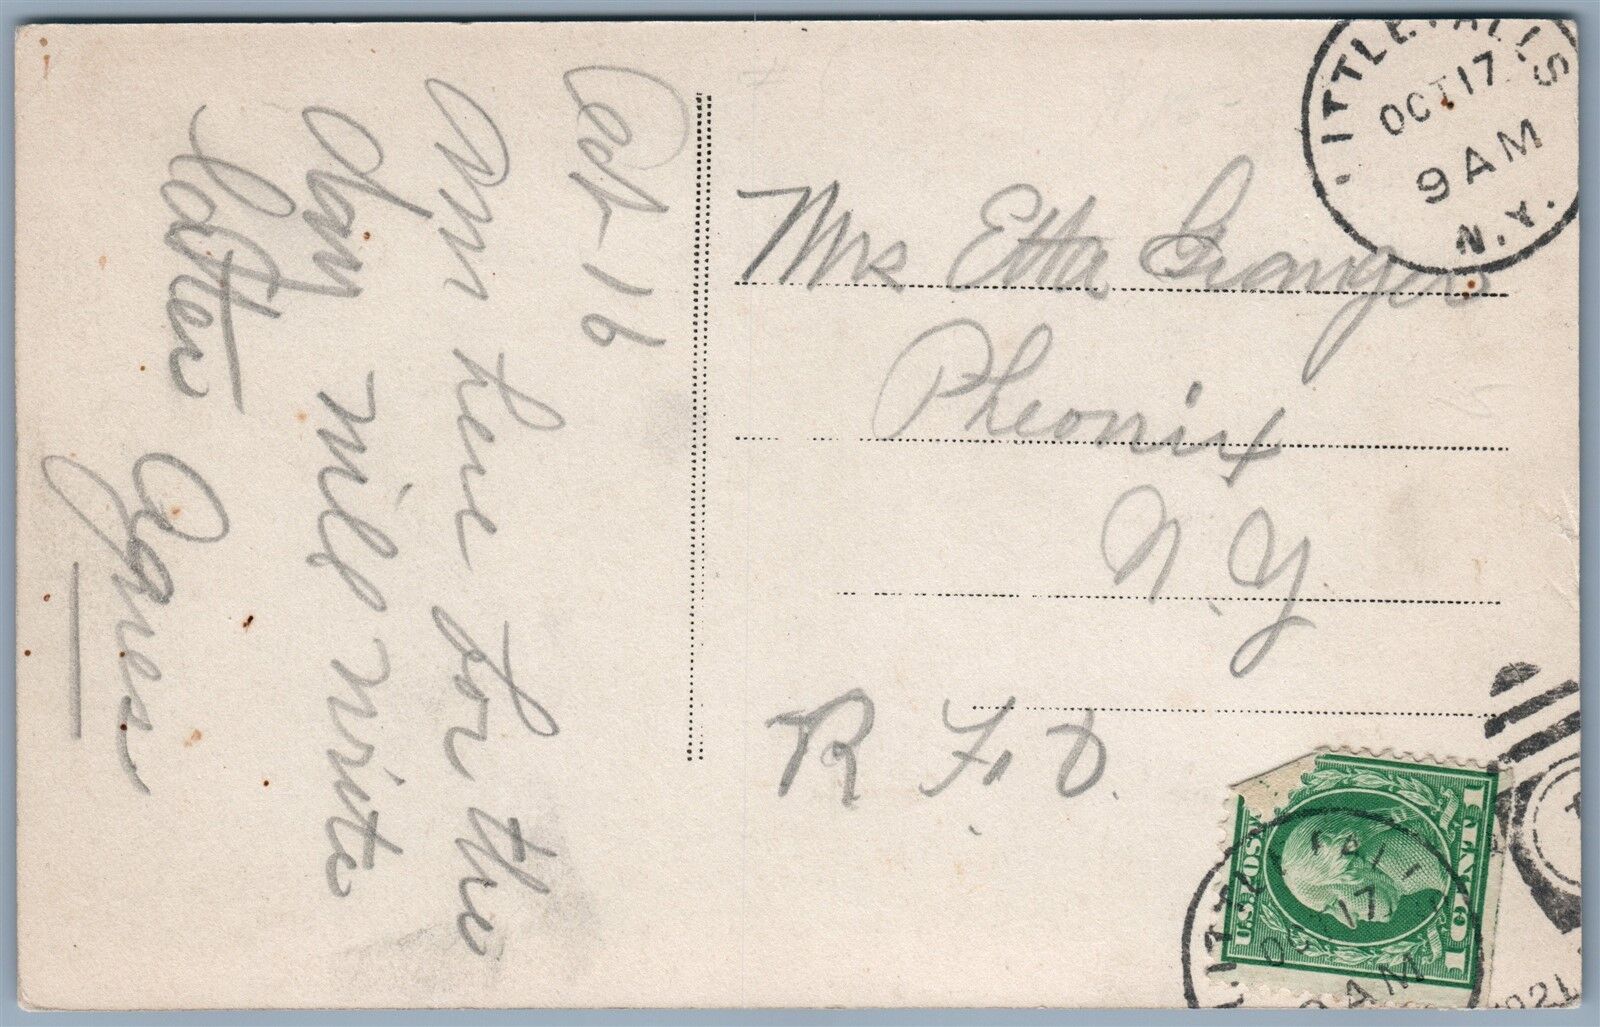 Oct-16
Am here for the
day will write
later
Agnes
LITTLE FALLS
OCT 17
9 AM
N.Y.
Mrs Etta Granger
Pheonix
N.Y
R.F.D.
U.S. POSTAGE
1 CENT 1
OCT 17
AM